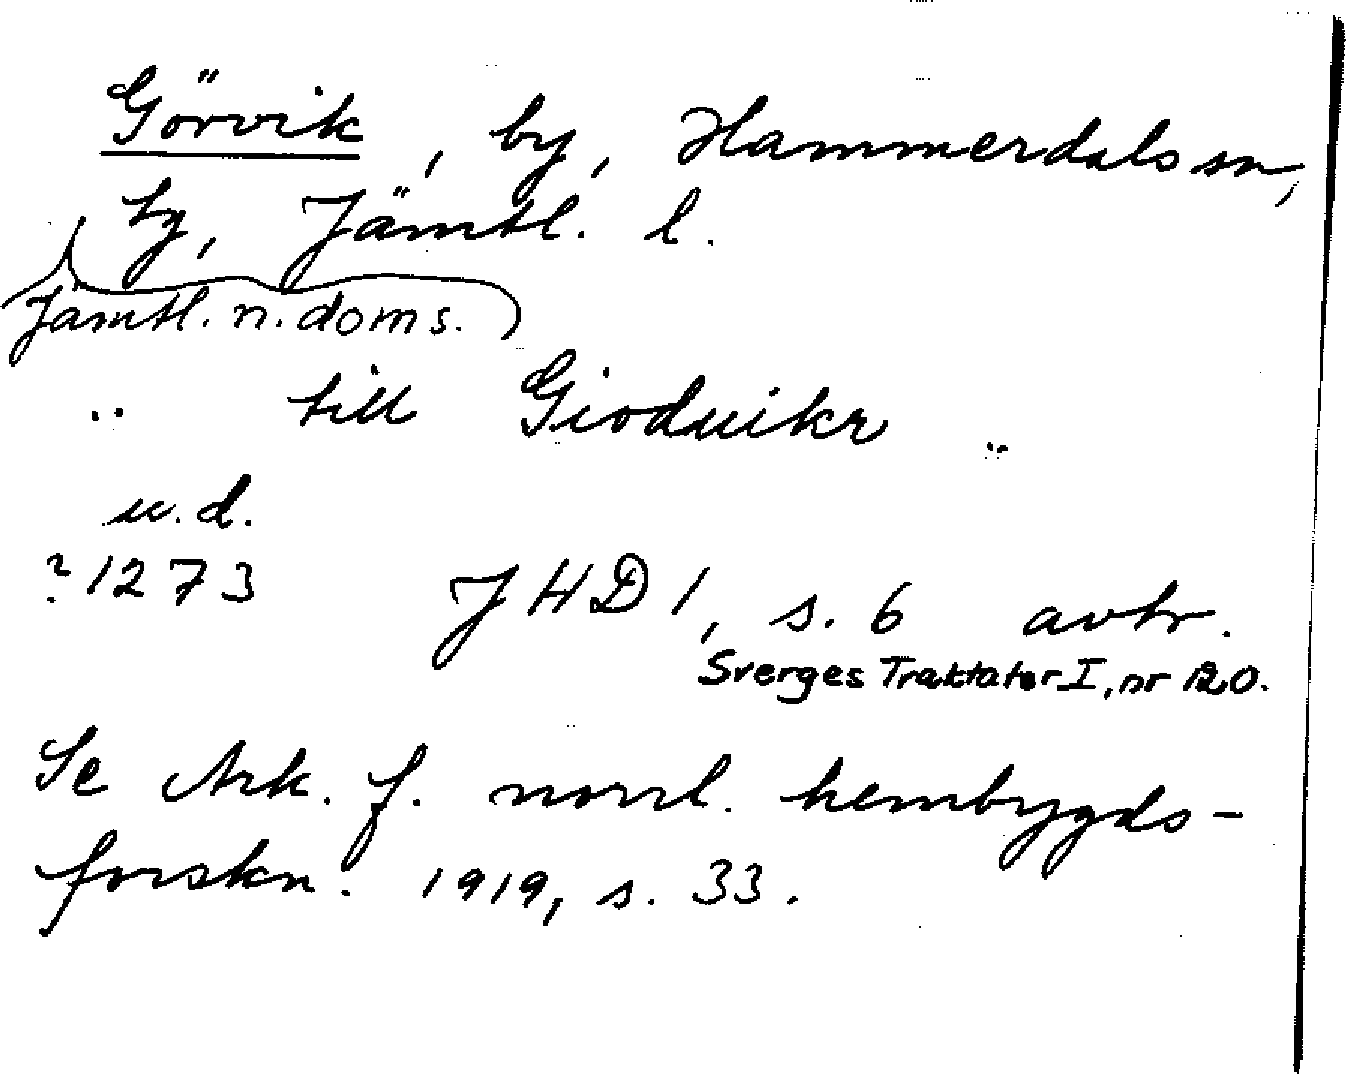 Görvik, by, Hammerdals sn,
tg, Jämtl. l.
Jämtl. n. doms.
" till Gioduikr "
u.d.
?1273 JHD 1, s. 6 avtr.
Sverges Traktater I, nr 120.
Se Ark. f. norrl. hembygds-
forskn. 1919, s. 33.